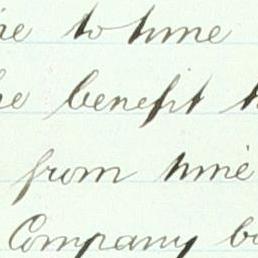 to time
benefit
from time
Company